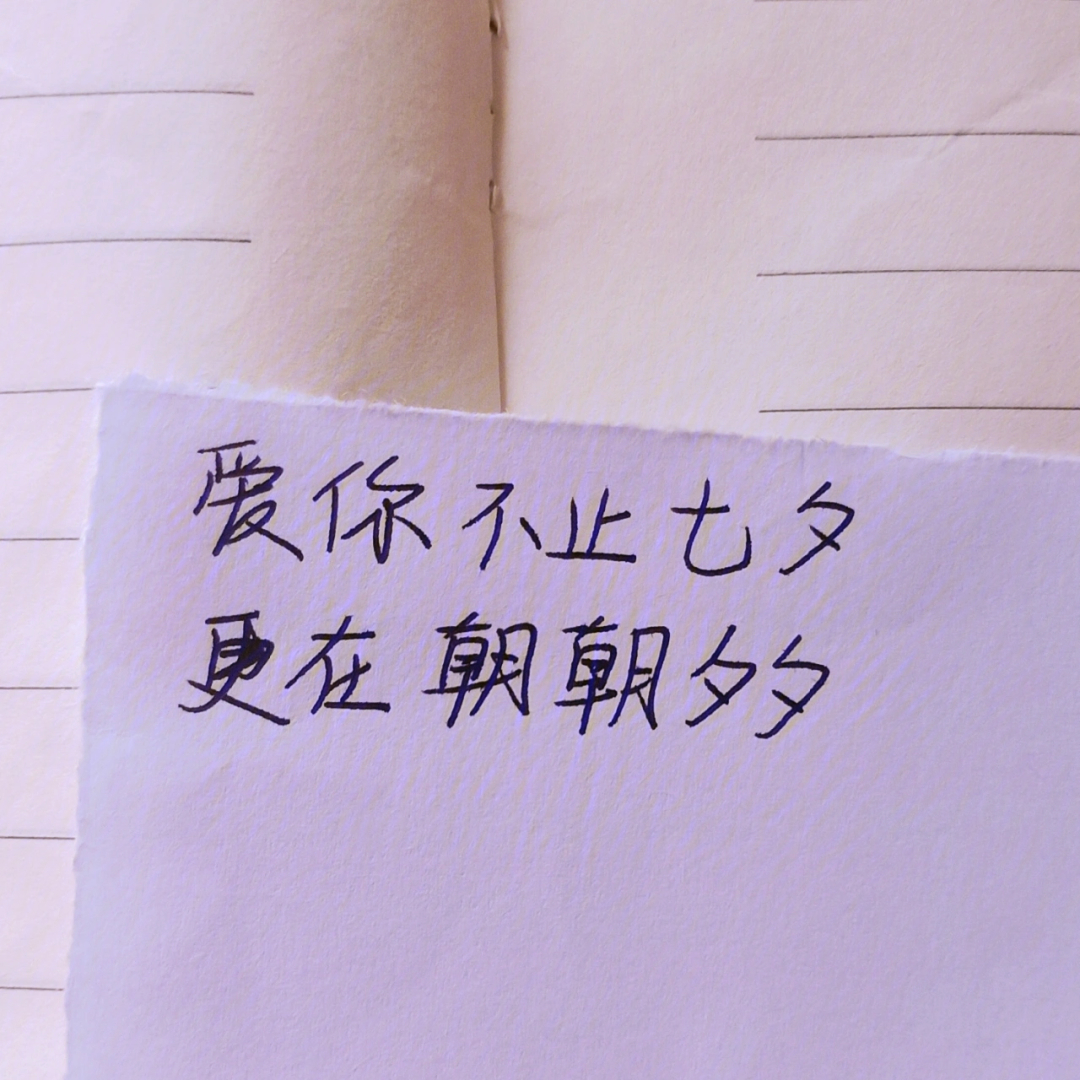 爱你不止七夕
更在朝朝夕夕